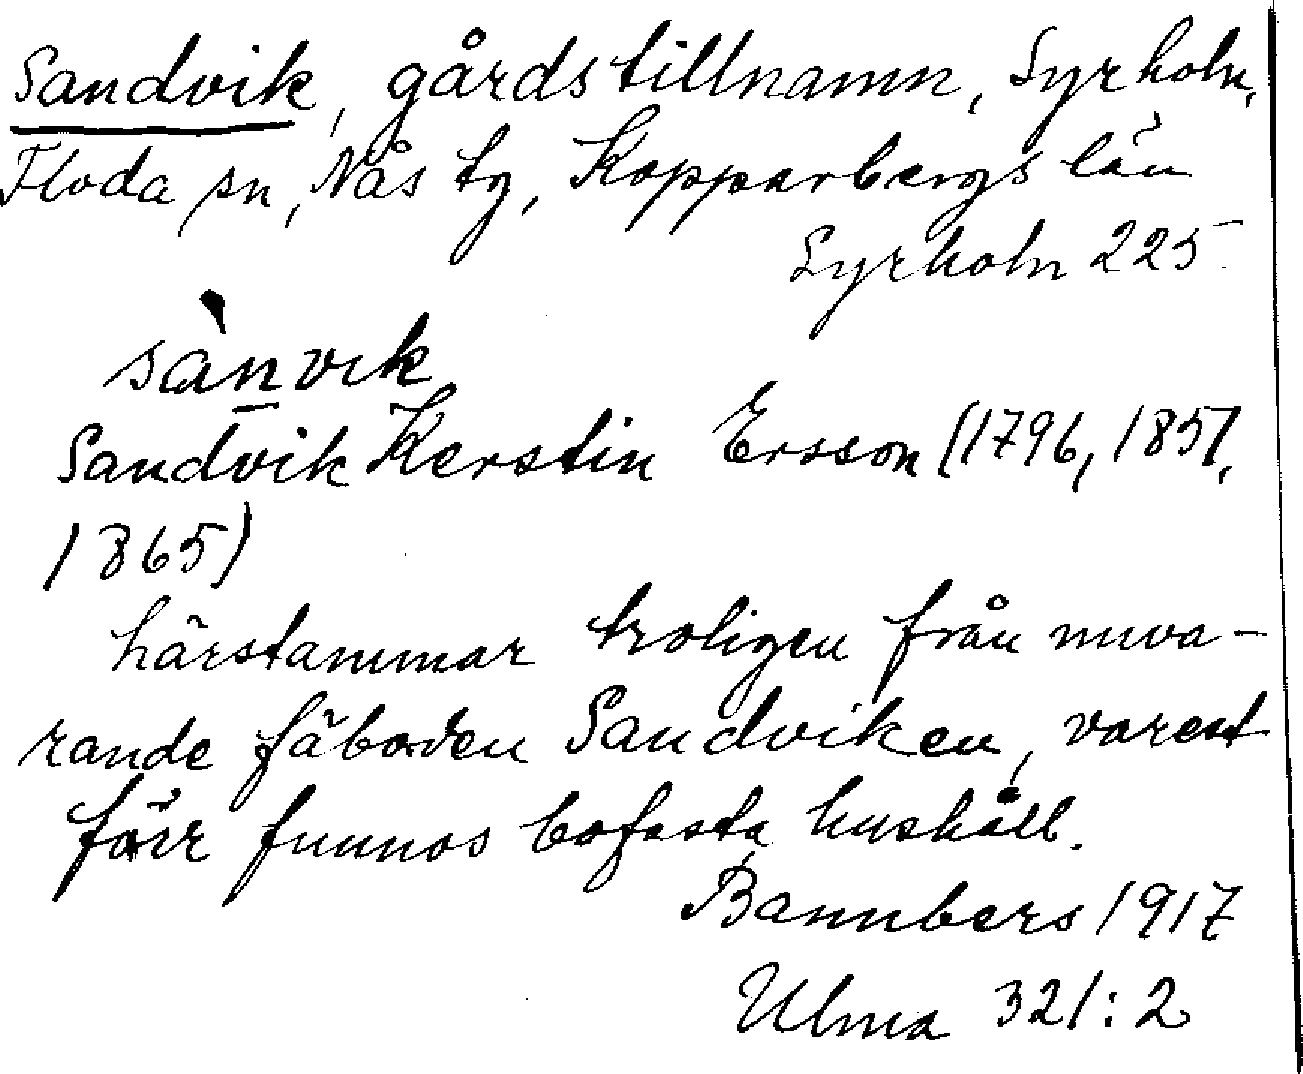 Sandvik, gårdstillnamn, Syrholn,
Floda sn, Nås tg, Kopparbergs län
Syrholn 225
sànvik
Sandvik Kerstin Ersson (1796, 1851,
1865)
härstammar troligen från nuva-
rande fäboden Sandviken, varest
förr funnos bofasta hushåll.
Bannbers 1917
Ulma 321:2